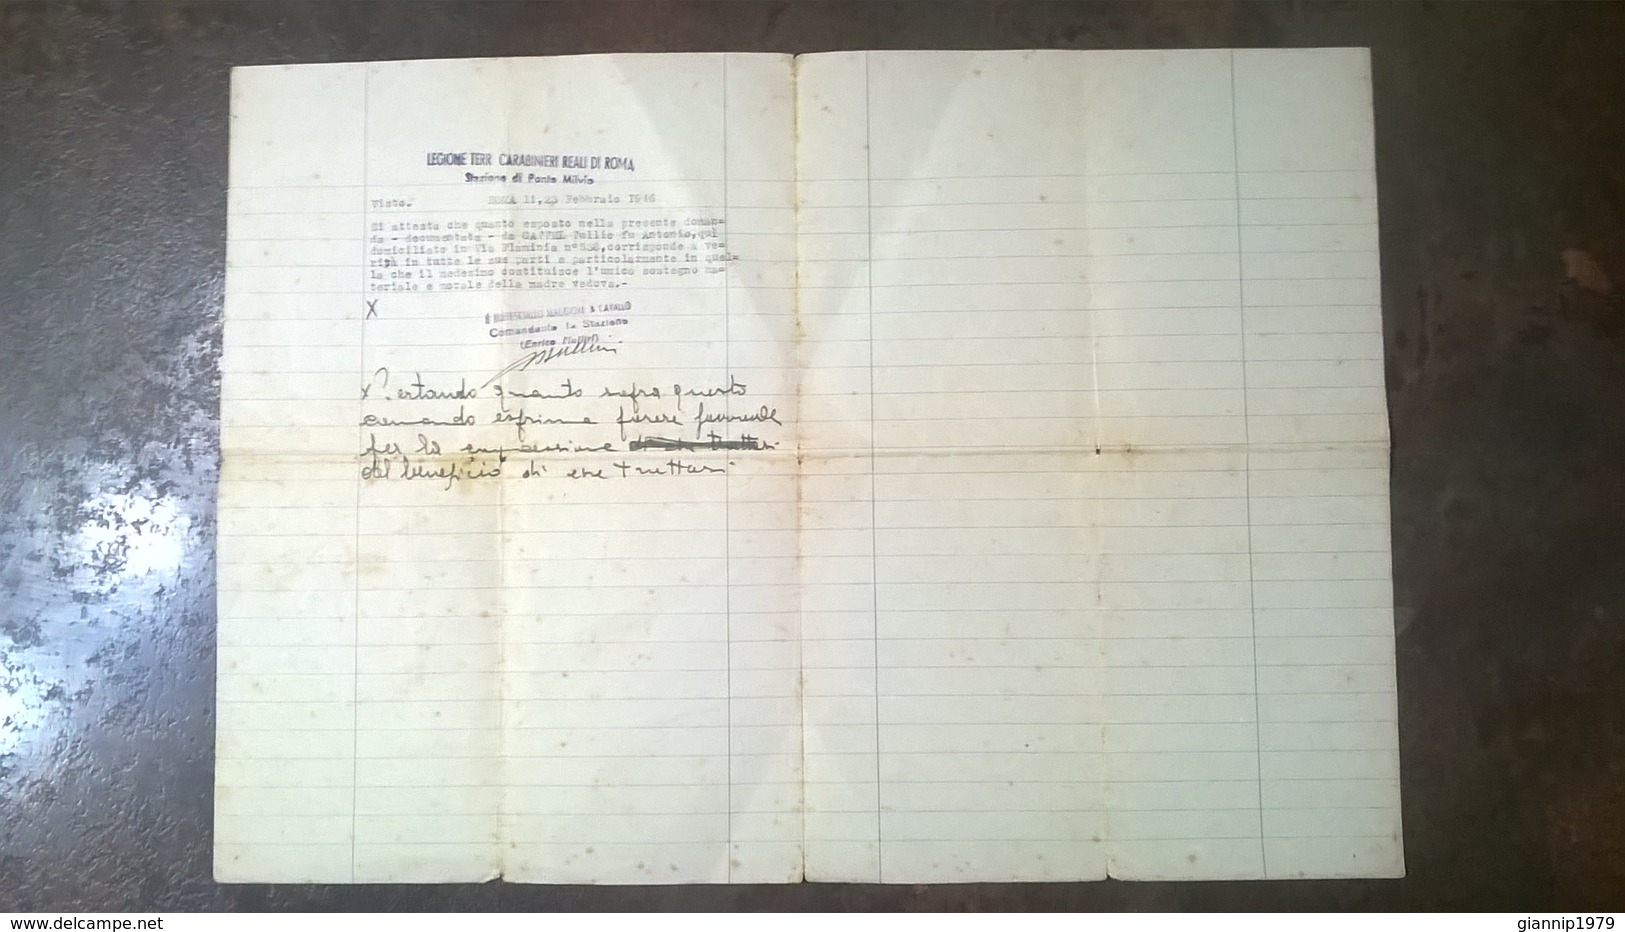 LEGIONE TERR CARABINIERI REALI DI ROMA
Stazione di Ponte Milvio
Visto.- ROMA li, 23 Febbraio 1946
Si attesta che quanto esposto nella presente doman=
da - documentata - da Tullio fu Antonio, qui
domiciliato in Via Flaminia n°538, corrisponde a ve=
rità in tutte le sue parti e particolarmente in quel=
la che il medesimo costituisce l'unico sostegno ma=
teriale e morale della madre vedova.-
X
A CAVALLO
Comandante la Stazione
(Enrico
x quanto sopra questo
comando esprime parere favorevole
per la
del beneficio di
www.delcampe.net
giannip1979